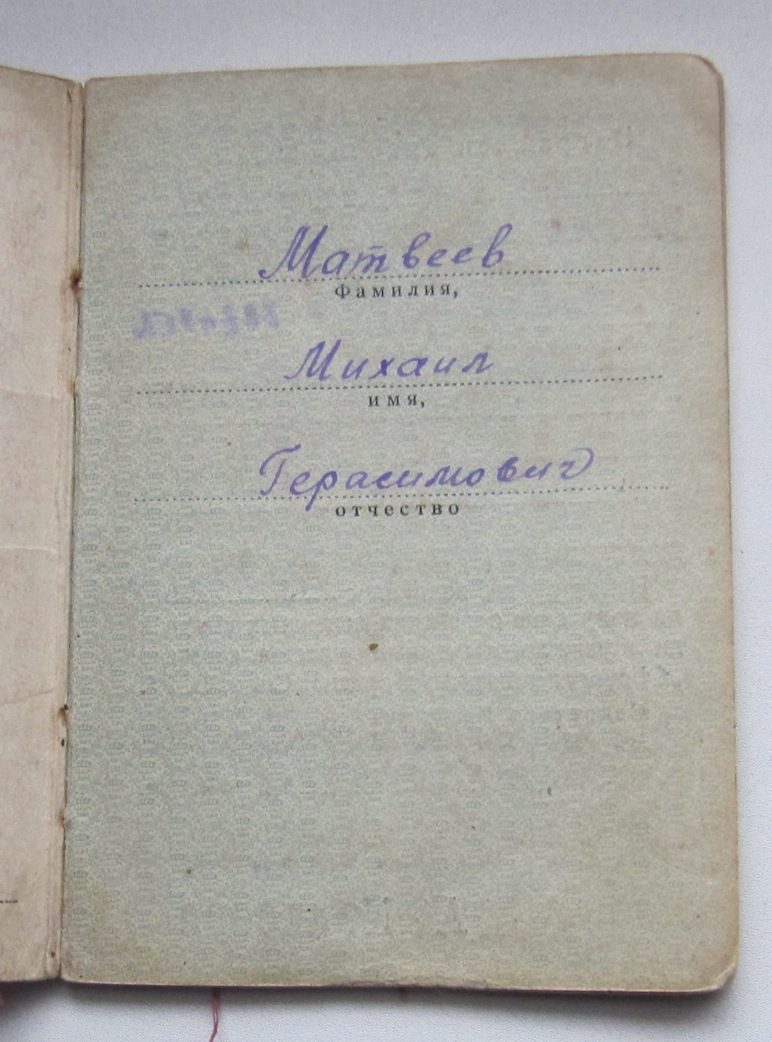 Матвеев
Фамилия,
Михаил
имя,
Герасимович
отчество